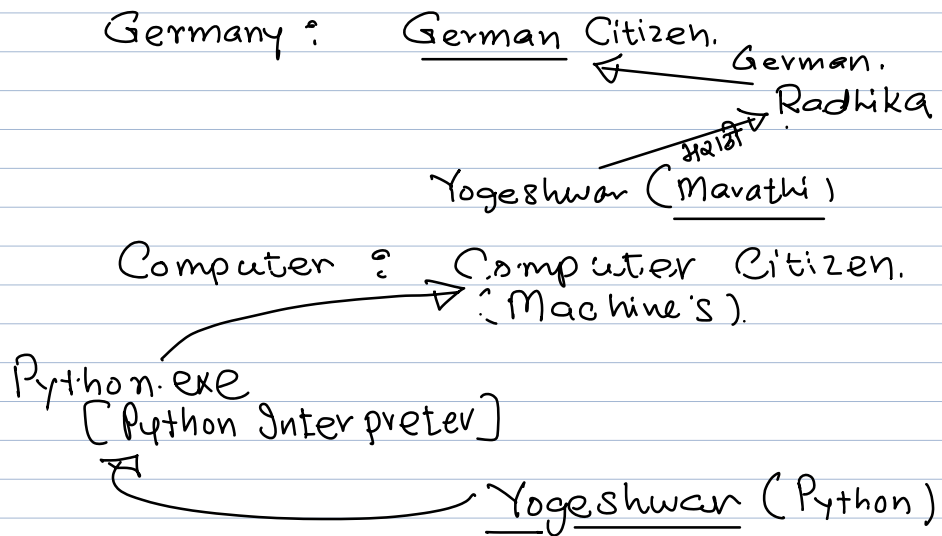 Germany : German Citizen.
German.
Radhika
मराठी
Yogeshwar (Marathi)
Computer : Computer Citizen.
(Machine's).
Python.exe
[Python Interpreter]
Yogeshwar (Python)